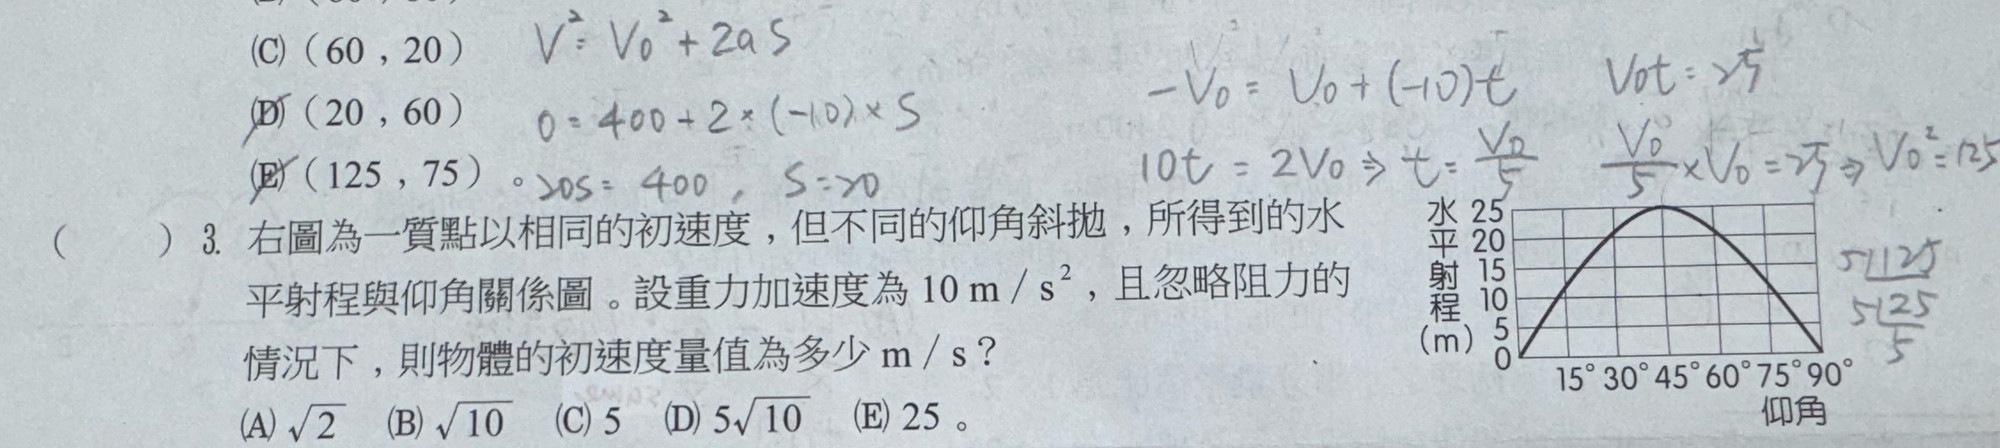 (C)（60 , 20）
(D)（20 , 60）
(E)（125 , 75）。
V² = V₀² + 2aS
0 = 400 + 2×(-10)×S
20S = 400 , S = 20
-V₀ = V₀ + (-10)t
10t = 2V₀ ⇒ t = V₀/5
V₀t = 25
V₀/5 × V₀ = 25 ⇒ V₀² = 125
（　　）3. 右圖為一質點以相同的初速度，但不同的仰角斜拋，所得到的水
平射程與仰角關係圖。設重力加速度為 10 m／s²，且忽略阻力的
情況下，則物體的初速度量值為多少 m／s？
(A) √2　(B) √10　(C) 5　(D) 5√10　(E) 25 。
水平射程(m)
25
20
15
10
5
0
15° 30° 45° 60° 75° 90°
仰角
5|125
5|25
5